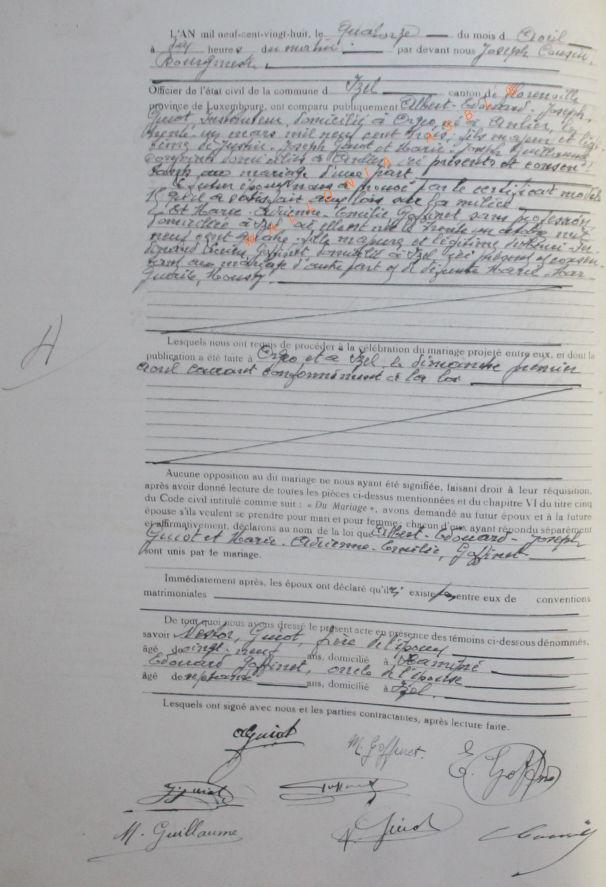 L'AN mil neuf-cent-vingt-huit, le quatorze du mois d'Avril
à dix heures du matin par devant nous Joseph
Bourgmestre,
Officier de l'état civil de la commune d Izel canton de Florenville
province de Luxembourg, ont comparu publiquement Albert-Edouard-Joseph,
Guiot Instituteur, domicilié à né à Anlier, le
trente-un mars mil neuf cent trois, fils majeur et légi-
time de Justin-Joseph Guiot et Marie-Joseph Guillaume
conjoints domiciliés à Anlier ici présents et consen-
tants au mariage d'une part
Le futur époux nous a prouvé par le certificat modèle
qu'il a satisfait aux lois sur la milice
Et Marie-Adrienne-Emilie Goffinet sans profession
domiciliée à Izel, où elle est née le trente un octobre mil
neuf cent fille majeure et légitime
Goffinet, domicilié à Izel ici présent et consen-
tant au mariage d'autre part et de défunte Marie-Mar
guerite,
Lesquels nous ont requis de procéder à la célébration du mariage projeté entre eux, et dont la
publication a été faite à et à Izel, le dimanche premier
avril courant conformément à la loi
Aucune opposition au dit mariage ne nous ayant été signifiée, faisant droit à leur réquisition,
après avoir donné lecture de toutes les pièces ci-dessus mentionnées et du chapitre VI du titre cinq
du Code civil intitulé comme suit : « Du Mariage », avons demandé au futur époux et à la future
épouse s'ils veulent se prendre pour mari et pour femme, chacun d'eux ayant répondu séparément
et affirmativement, déclarons au nom de la loi que Albert-Edouard-Joseph
Guiot et Marie-Adrienne-Emilie, Goffinet
sont unis par le mariage.
Immédiatement après, les époux ont déclaré qu'il existe pas entre eux de conventions
matrimoniales
De tout quoi nous avons dressé le présent acte en présence des témoins ci-dessous dénommés,
savoir Nestor, Guiot, frère de l'époux
âgé de vingt-neuf ans, domicilié à
Edouard Goffinet, oncle de l'épouse
âgé de septante ans, domicilié à Izel.
Lesquels ont signé avec nous et les parties contractantes, après lecture faite.
AGuiot
M. Goffinet.
E. Goffinet
J Guiot
Goffinet
M. Guillaume
N. Guiot